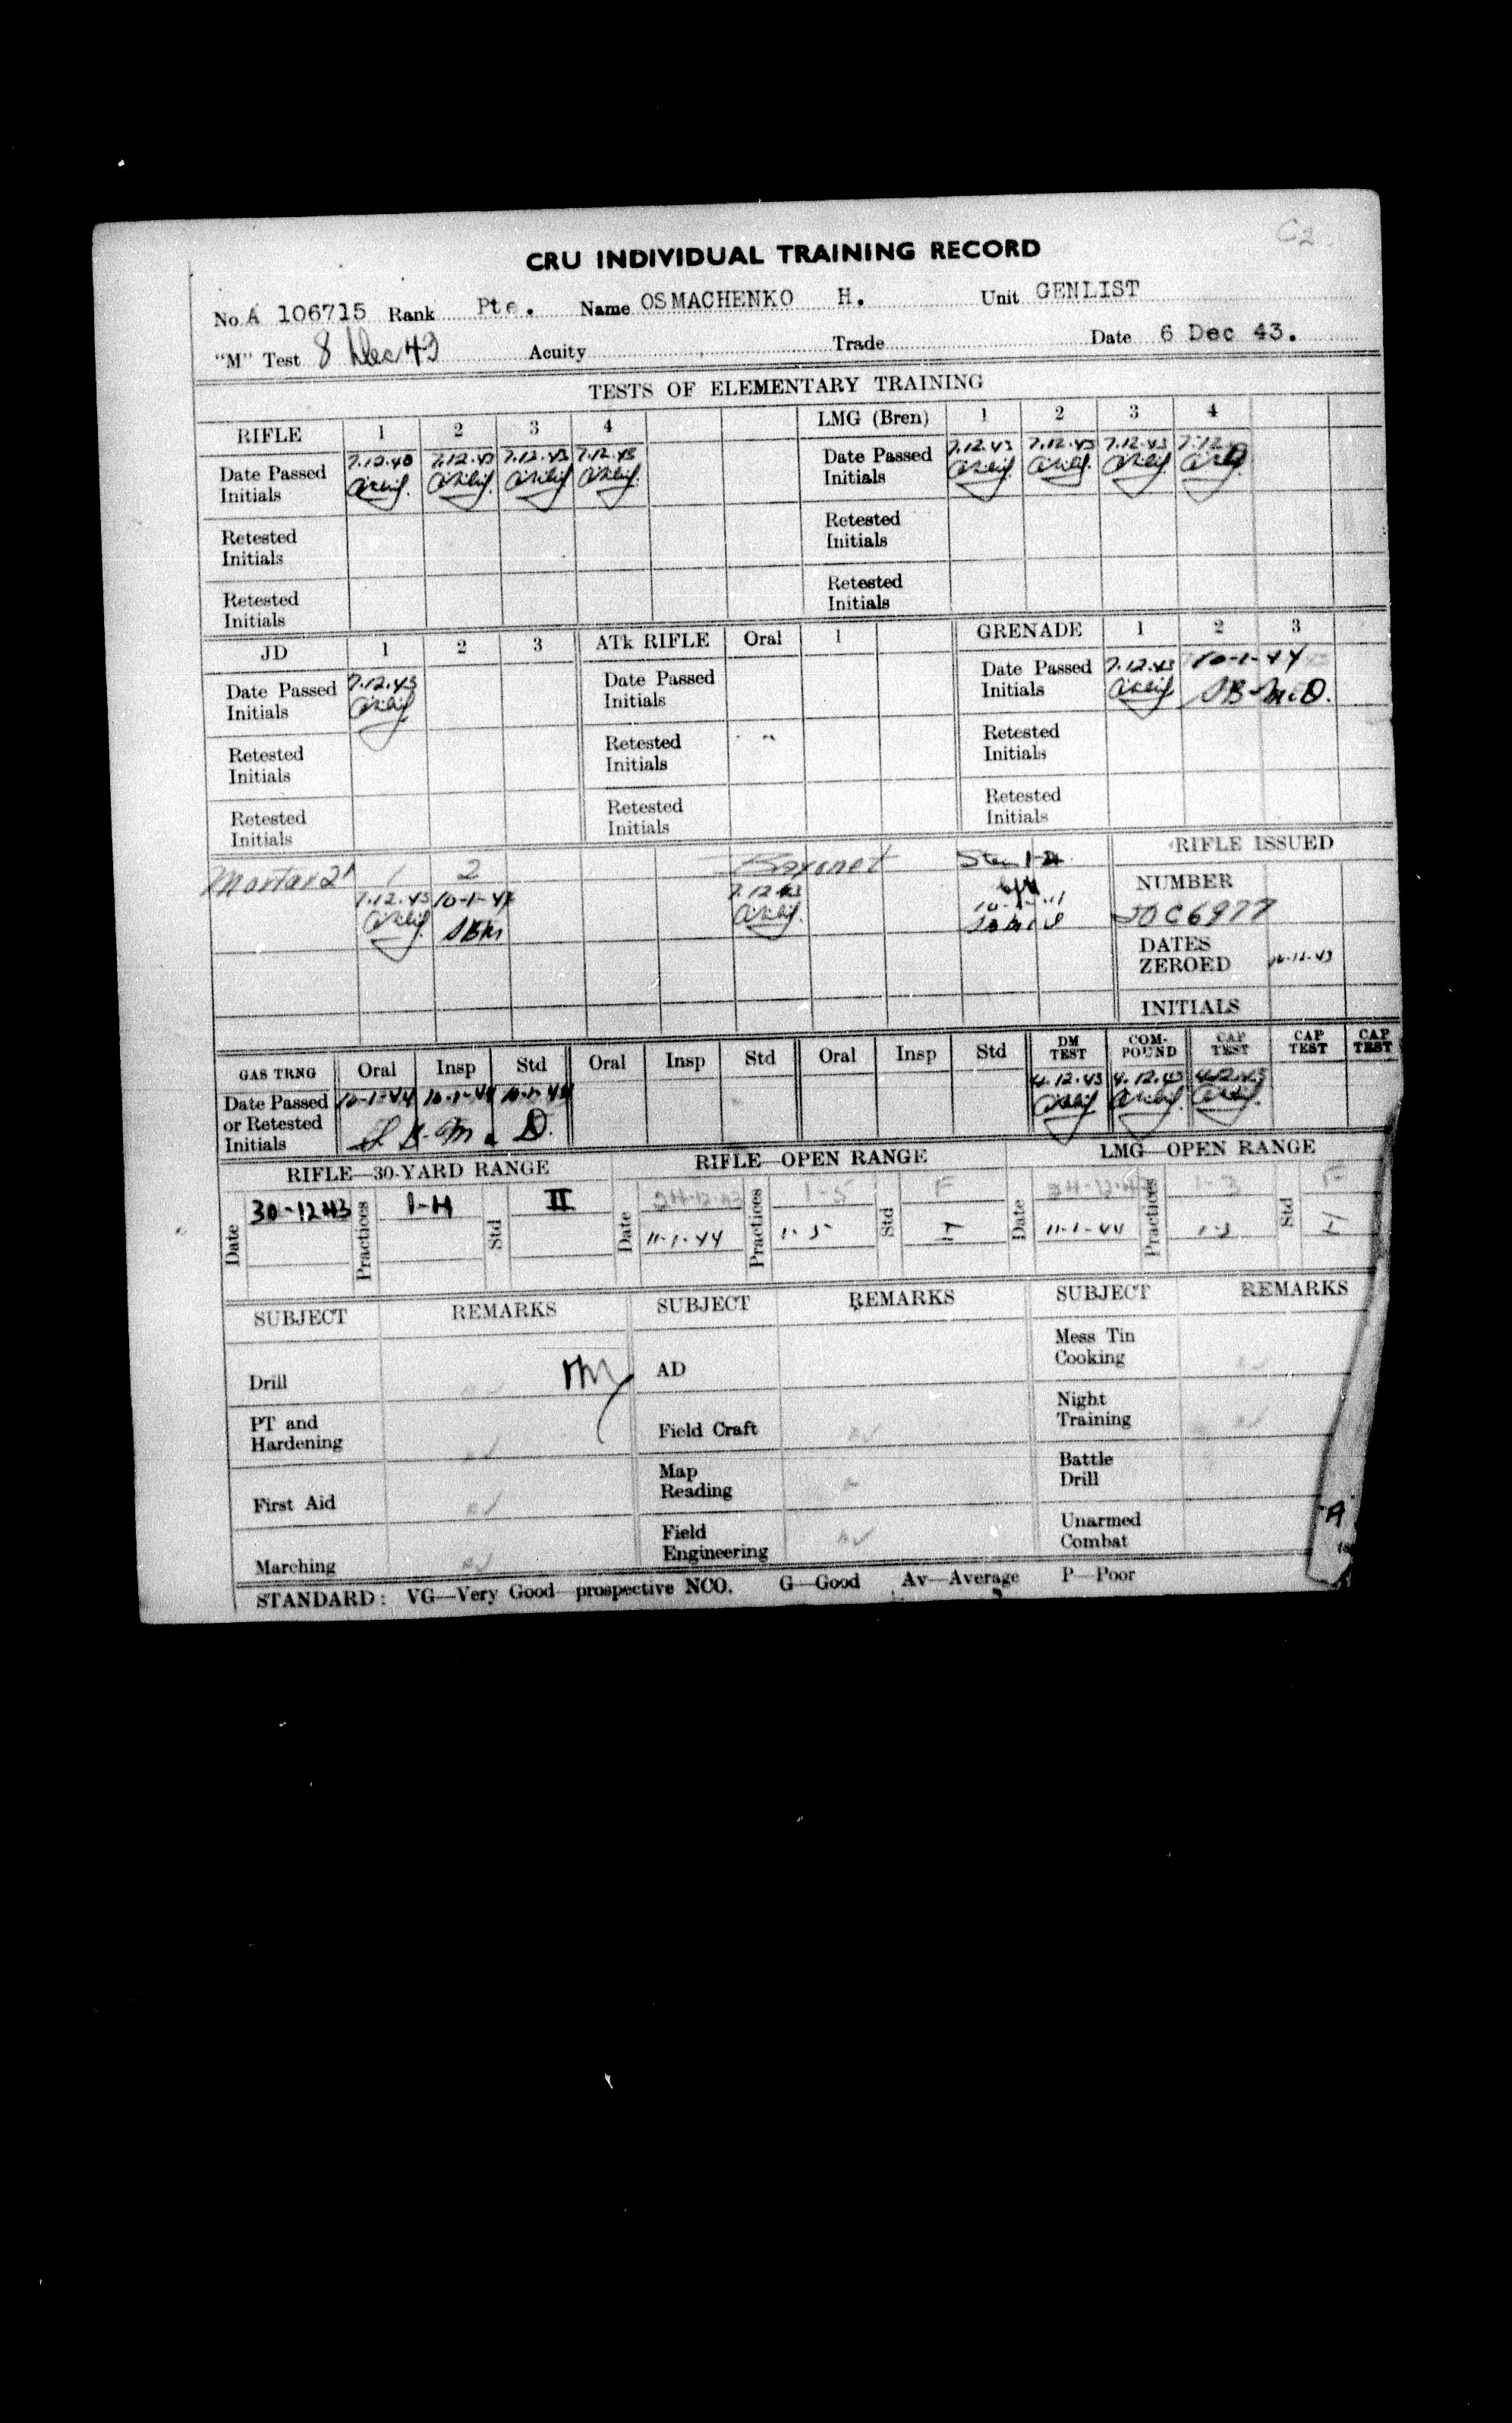 C2
CRU INDIVIDUAL TRAINING RECORD
No. A 106715 Rank Pte. Name OSMACHENKO H. Unit GENLIST
"M" Test 8 Dec 43 Acuity Trade Date 6 Dec 43.
TESTS OF ELEMENTARY TRAINING
RIFLE 1 2 3 4 LMG (Bren) 1 2 3 4
Date Passed 7.12.43 7.12.43 7.12.43 Date Passed 7.12.43 7.12.43 7.12.43 7.12.
Initials Initials
Retested Retested
Initials Initials
Retested Retested
Initials Initials
JD 1 2 3 ATk RIFLE Oral 1 GRENADE 1 2 3
Date Passed 7.12.43 Date Passed Date Passed 7.12.43 10-1-44
Initials Initials Initials
Retested Retested Retested
Initials Initials Initials
Retested Retested Retested
Initials Initials Initials
Mortar 2" 1 2 Bayonet Sten RIFLE ISSUED
7.12.43 10-1-44 7.12.43 NUMBER
6977
DATES
ZEROED
INITIALS
GAS TRNG Oral Insp Std Oral Insp Std Oral Insp Std DM TEST COM-POUND CAP TEST CAP TEST CAP TEST
Date Passed 10-1-44 10-1-44 10-1-44 4.12.43 4.12.43 4.12.43
or Retested
Initials
RIFLE—30-YARD RANGE RIFLE—OPEN RANGE LMG—OPEN RANGE
Date 30-12-43 Practices 1-4 Std II Date 24-12-43 Practices 1-5 Std F Date Practices 1-3 Std F
11-1-44 1-5 11-1-44 1-3
SUBJECT REMARKS SUBJECT REMARKS SUBJECT REMARKS
Drill AD Mess Tin Cooking
PT and Hardening av Field Craft av Night Training av
First Aid av Map Reading Battle Drill
Marching av Field Engineering av Unarmed Combat
"A"
STANDARD: VG—Very Good—prospective NCO. G—Good Av—Average P—Poor